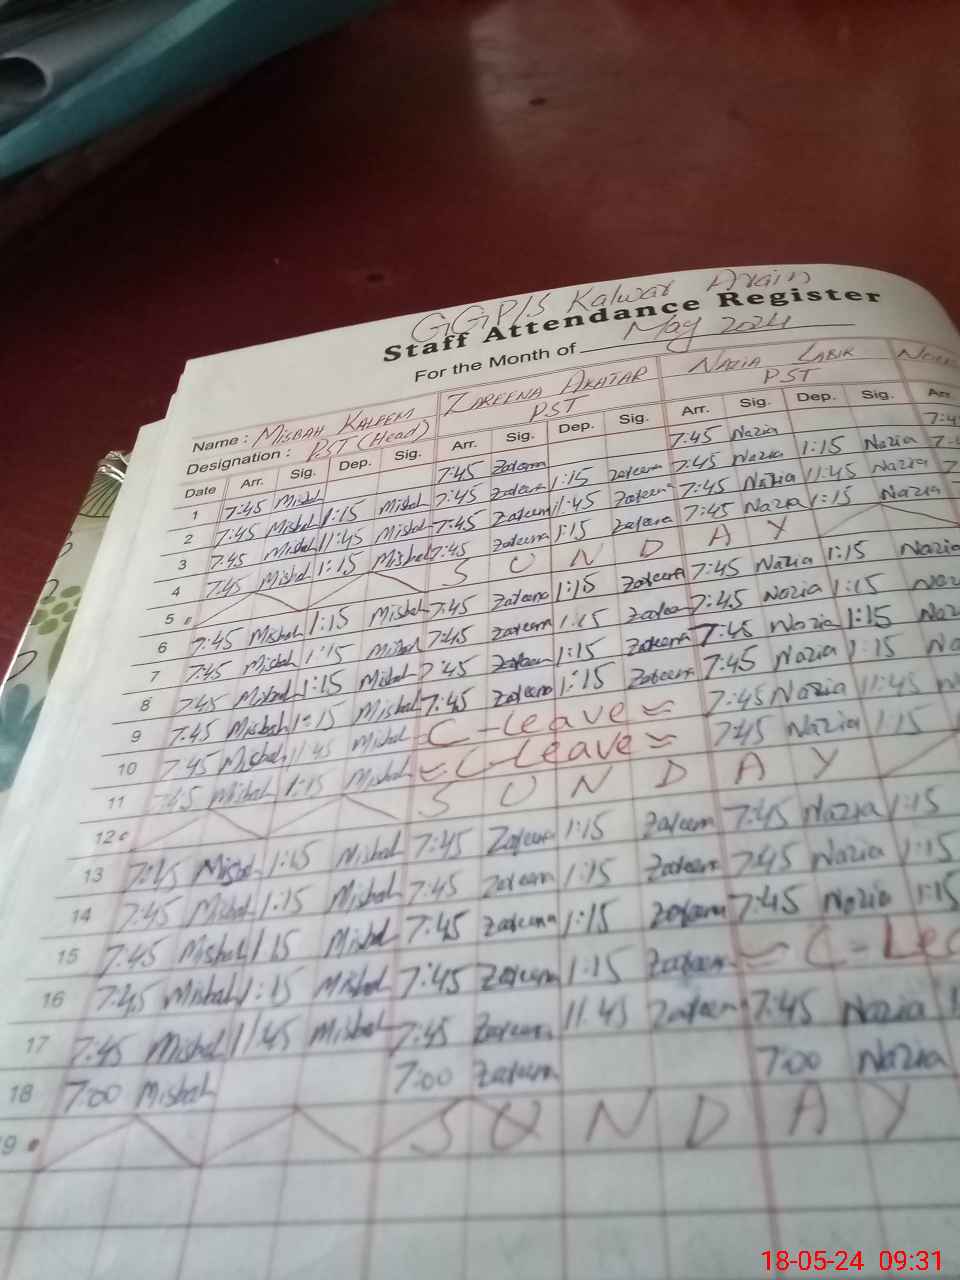 GGP/S Kalwar Arain
Staff Attendance Register
For the Month of May 2024
Name : MISBAH KALEEM ZAREENA AKATAR NAZIA LABIK
Designation : PST (Head) PST PST
Date Arr. Sig. Dep. Sig. Arr. Sig. Dep. Sig. Arr. Sig. Dep. Sig. Arr.
1 7:45 Misbah 7:45 Zareena 7:45 Nazia
2 7:45 Misbah 1:15 Misbah 7:45 Zareena 1:15 Zareena 7:45 Nazia 1:15 Nazia
3 7:45 Misbah 11:45 Misbah 7:45 Zareena 11:45 Zareena 7:45 Nazia 11:45 Nazia
4 7:45 Misbah 1:15 Misbah 7:45 Zareena 1:15 Zareena 7:45 Nazia 1:15 Nazia
5 S U N D A Y
6 7:45 Misbah 1:15 Misbah 7:45 Zareena 1:15 Zareena 7:45 Nazia 1:15 Nazia
7 7:45 Misbah 1:15 Misbah 7:45 Zareena 1:15 Zareena 7:45 Nazia 1:15
8 7:45 Misbah 1:15 Misbah 7:45 Zareena 1:15 Zareena 7:45 Nazia 1:15
9 7:45 Misbah 1:15 Misbah 7:45 Zareena 1:15 Zareena 7:45 Nazia 1:15
10 7:45 Misbah 11:45 Misbah C-Leave 7:45 Nazia 11:45
11 7:45 Misbah 1:15 Misbah C-Leave 7:45 Nazia 1:15
12 S U N D A Y
13 7:45 Misbah 1:15 Misbah 7:45 Zareena 1:15 Zareena 7:45 Nazia 1:15
14 7:45 Misbah 1:15 Misbah 7:45 Zareena 1:15 Zareena 7:45 Nazia 1:15
15 7:45 Misbah 1:15 Misbah 7:45 Zareena 1:15 Zareena 7:45 Nazia 1:15
16 7:45 Misbah 1:15 Misbah 7:45 Zareena 1:15 Zareena C-Lea
17 7:45 Misbah 11:45 Misbah 7:45 Zareena 11:45 Zareena 7:45 Nazia
18 7:00 Misbah 7:00 Zareena 7:00 Nazia
9 S U N D A Y
18-05-24 09:31